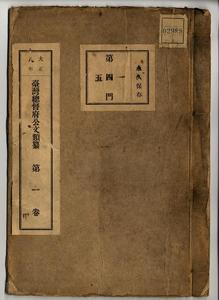 02989
永久保存
第四門
一
五
大正八年
臺灣總督府公文類纂
第一卷